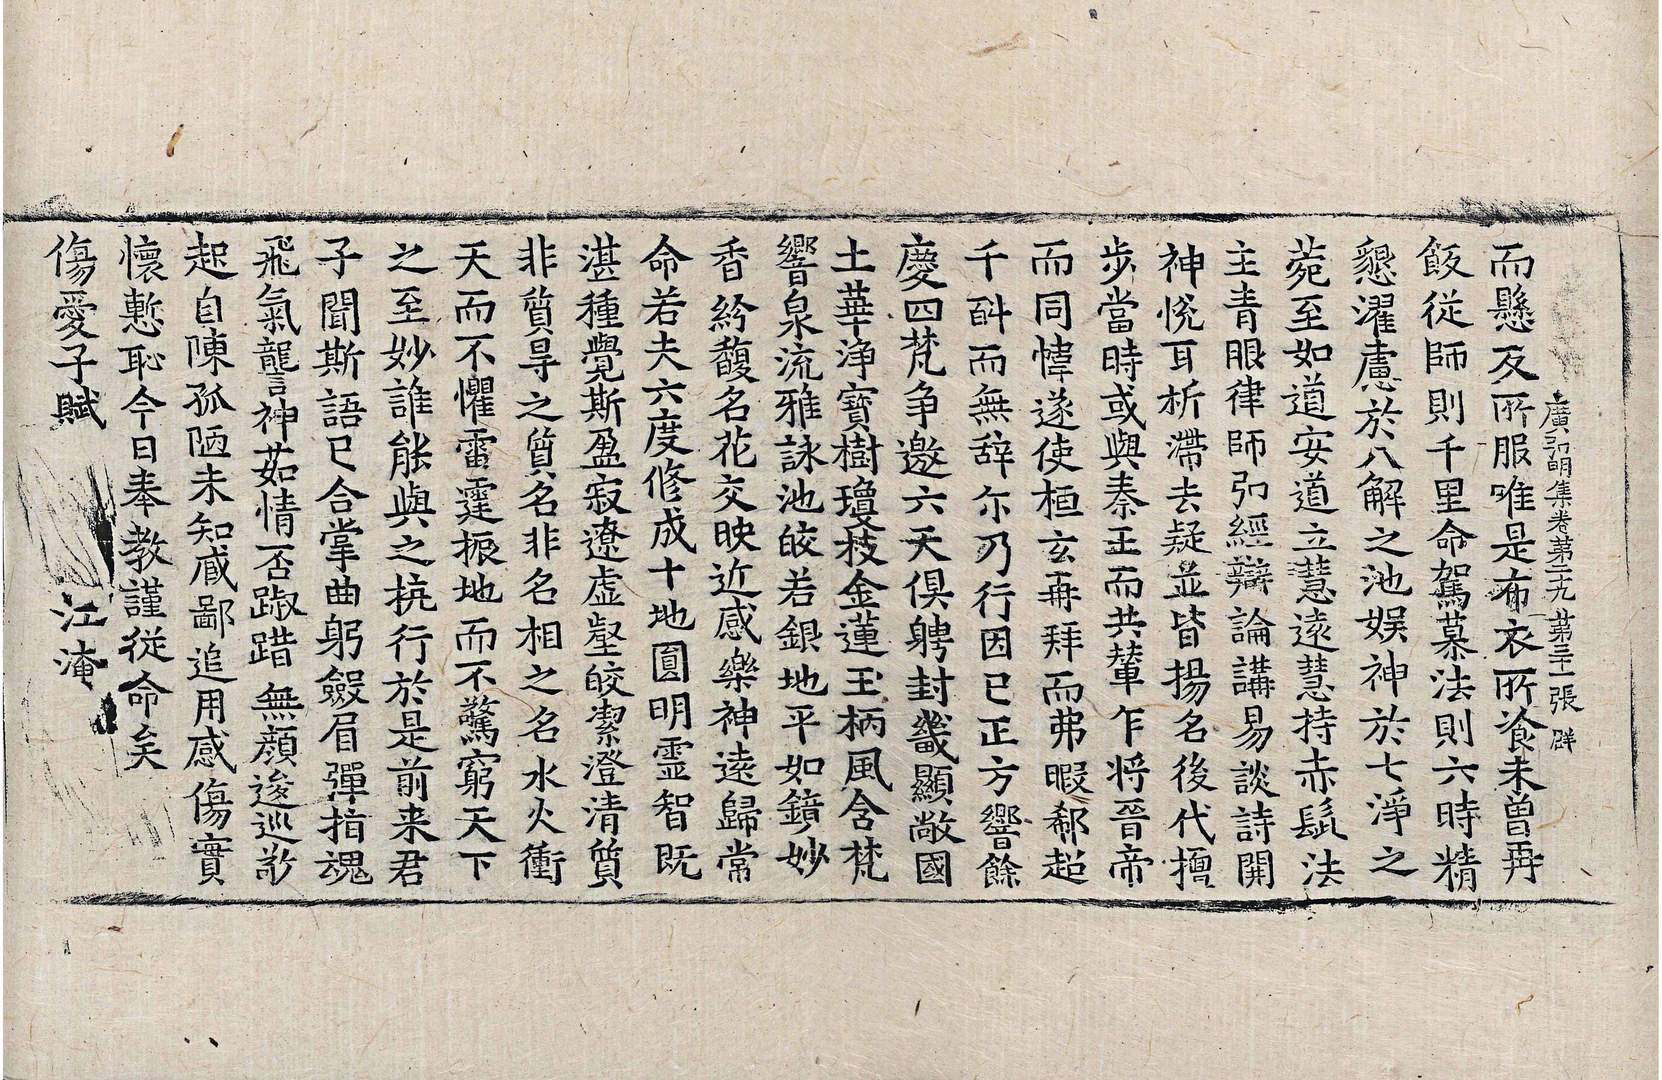 廣弘明集卷第二十九 第三十一張 辟
而懸及所服唯是布衣所飡未曽再
飯従師則千里命駕慕法則六時精
懇濯慮於八解之池娱神於七淨之
菀至如道安道立慧遠慧持赤髭法
主青眼律師弘經辯論講易談詩開
神悦耳析滯去疑並皆揚名後代擅
步當時或與秦王而共輦乍将晉帝
而同幃遂使桓玄再拜而弗暇郗超
千斛而無辞尒乃行因已正方響餘
慶四梵争邀六天俱聘封畿顯敞國
土華浄寶樹瓊枝金蓮玉柄風含梵
響泉流雅詠池皎若銀地平如鏡妙
香紛馥名花交映近感樂神遠歸常
命若夫六度修成十地圓明霊智既
湛種覺斯盈寂遼虚壑皎潔澄清質
非質导之質名非名相之名水火衝
天而不懼雷霆振地而不驚窮天下
之至妙誰能與之抗行於是前来君
子聞斯語已合掌曲躬斂眉彈指魂
飛氣讋神茹情否踧踖無顔逡巡敬
起自陳孤陋未知臧鄙追用感傷實
懷慙恥今日奉教謹従命矣
傷愛子賦 江淹